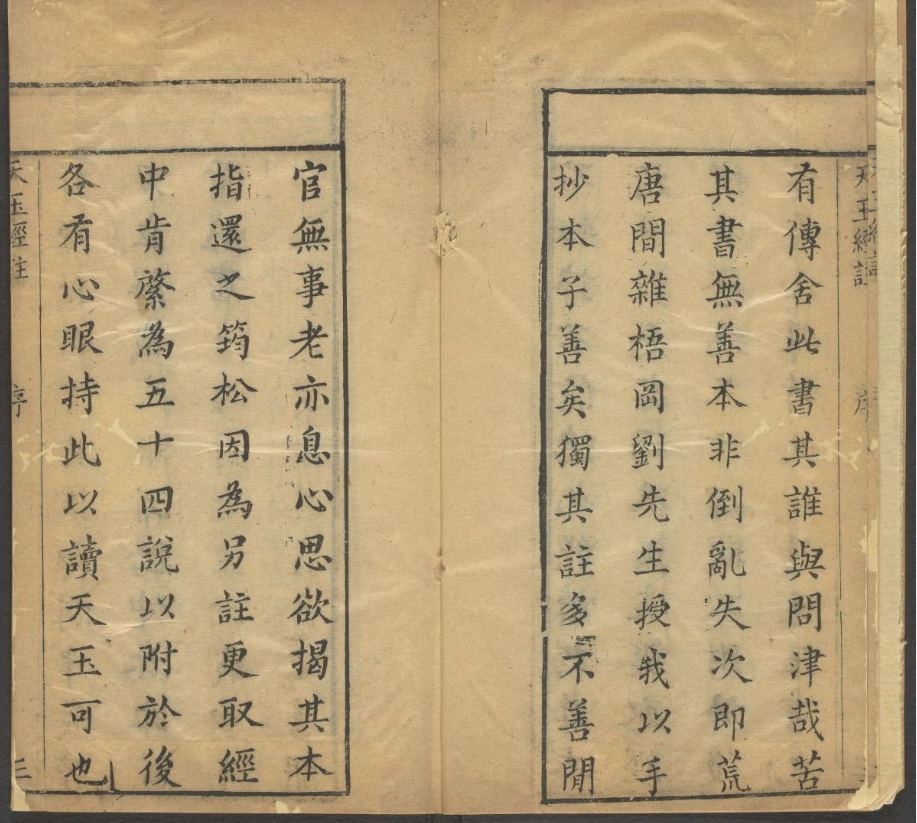 有傳舍此書其誰與問津哉苦
其書無善本非倒亂失次即荒
唐間雜梧岡劉先生授我以手
抄本子善矣獨其註多不善閒
官無事老亦息心思欲揭其本
指還之筠松因為另註更取經
中肯綮為五十四說以附於後
各有心眼持此以讀天玉可也
天玉經註 序 三